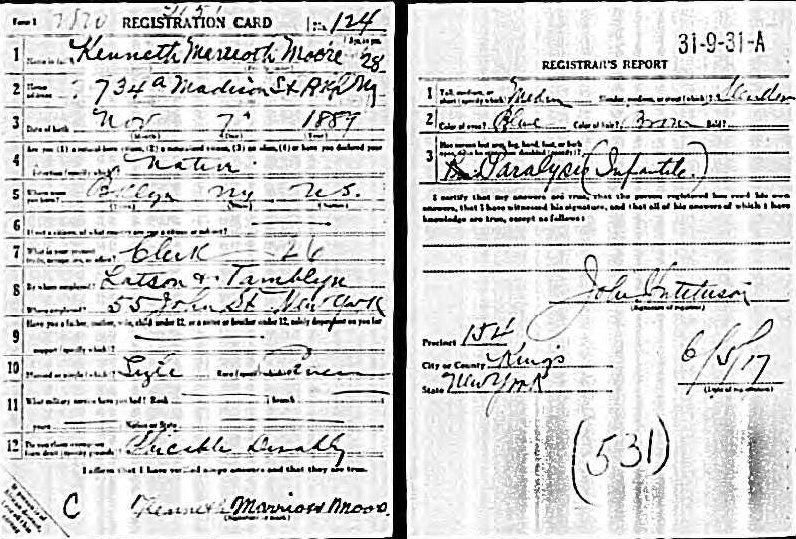 Form 1 REGISTRATION CARD No. 124
1 Kenneth Marrioth Moore 28
Name in full Age, in yrs.
2 Home address 734a Madison St Bklyn Ny
3 Date of birth Nov 7 1889
(Month) (Day) (Year)
4 Are you (1) a natural-born citizen, (2) a naturalized citizen, (3) an alien, (4) or have you declared your
intention (specify which)? Native
5 Where were you born? Bklyn Ny U.S.
(Town) (State) (Nation)
6 If not a citizen, of what country are you a citizen or subject?
7 What is your present trade, occupation, or office? Clerk 26
8 By whom employed? Latson & Tamblyn
Where employed? 55 John St New York
9 Have you a father, mother, wife, child under 12, or a sister or brother under 12, solely dependent on you for
support (specify which)?
10 Married or single (which)? Race (specify which)?
11 What military service have you had? Rank branch
years Nation or State
12 Do you claim exemption from draft (specify grounds)? Physical
I affirm that I have verified above answers and that they are true.
C Kenneth Marrioth Moore
(Signature or mark)
31-9-31-A
REGISTRAR'S REPORT
1 Tall, medium, or short (specify which)? Medium Slender, medium, or stout (which)? Slender
2 Color of eyes? Blue Color of hair? Brown Bald?
3 Has person lost arm, leg, hand, foot, or both
eyes, or is he otherwise disabled (specify)?
Paralysis (Infantile)
I certify that my answers are true, that the person registered has read his own
answers, that I have witnessed his signature, and that all of his answers of which I have
knowledge are true, except as follows:
John
(Signature of registrar)
Precinct 154
City or County Kings
State New York 6/5/17
(Date of registration)
(531)